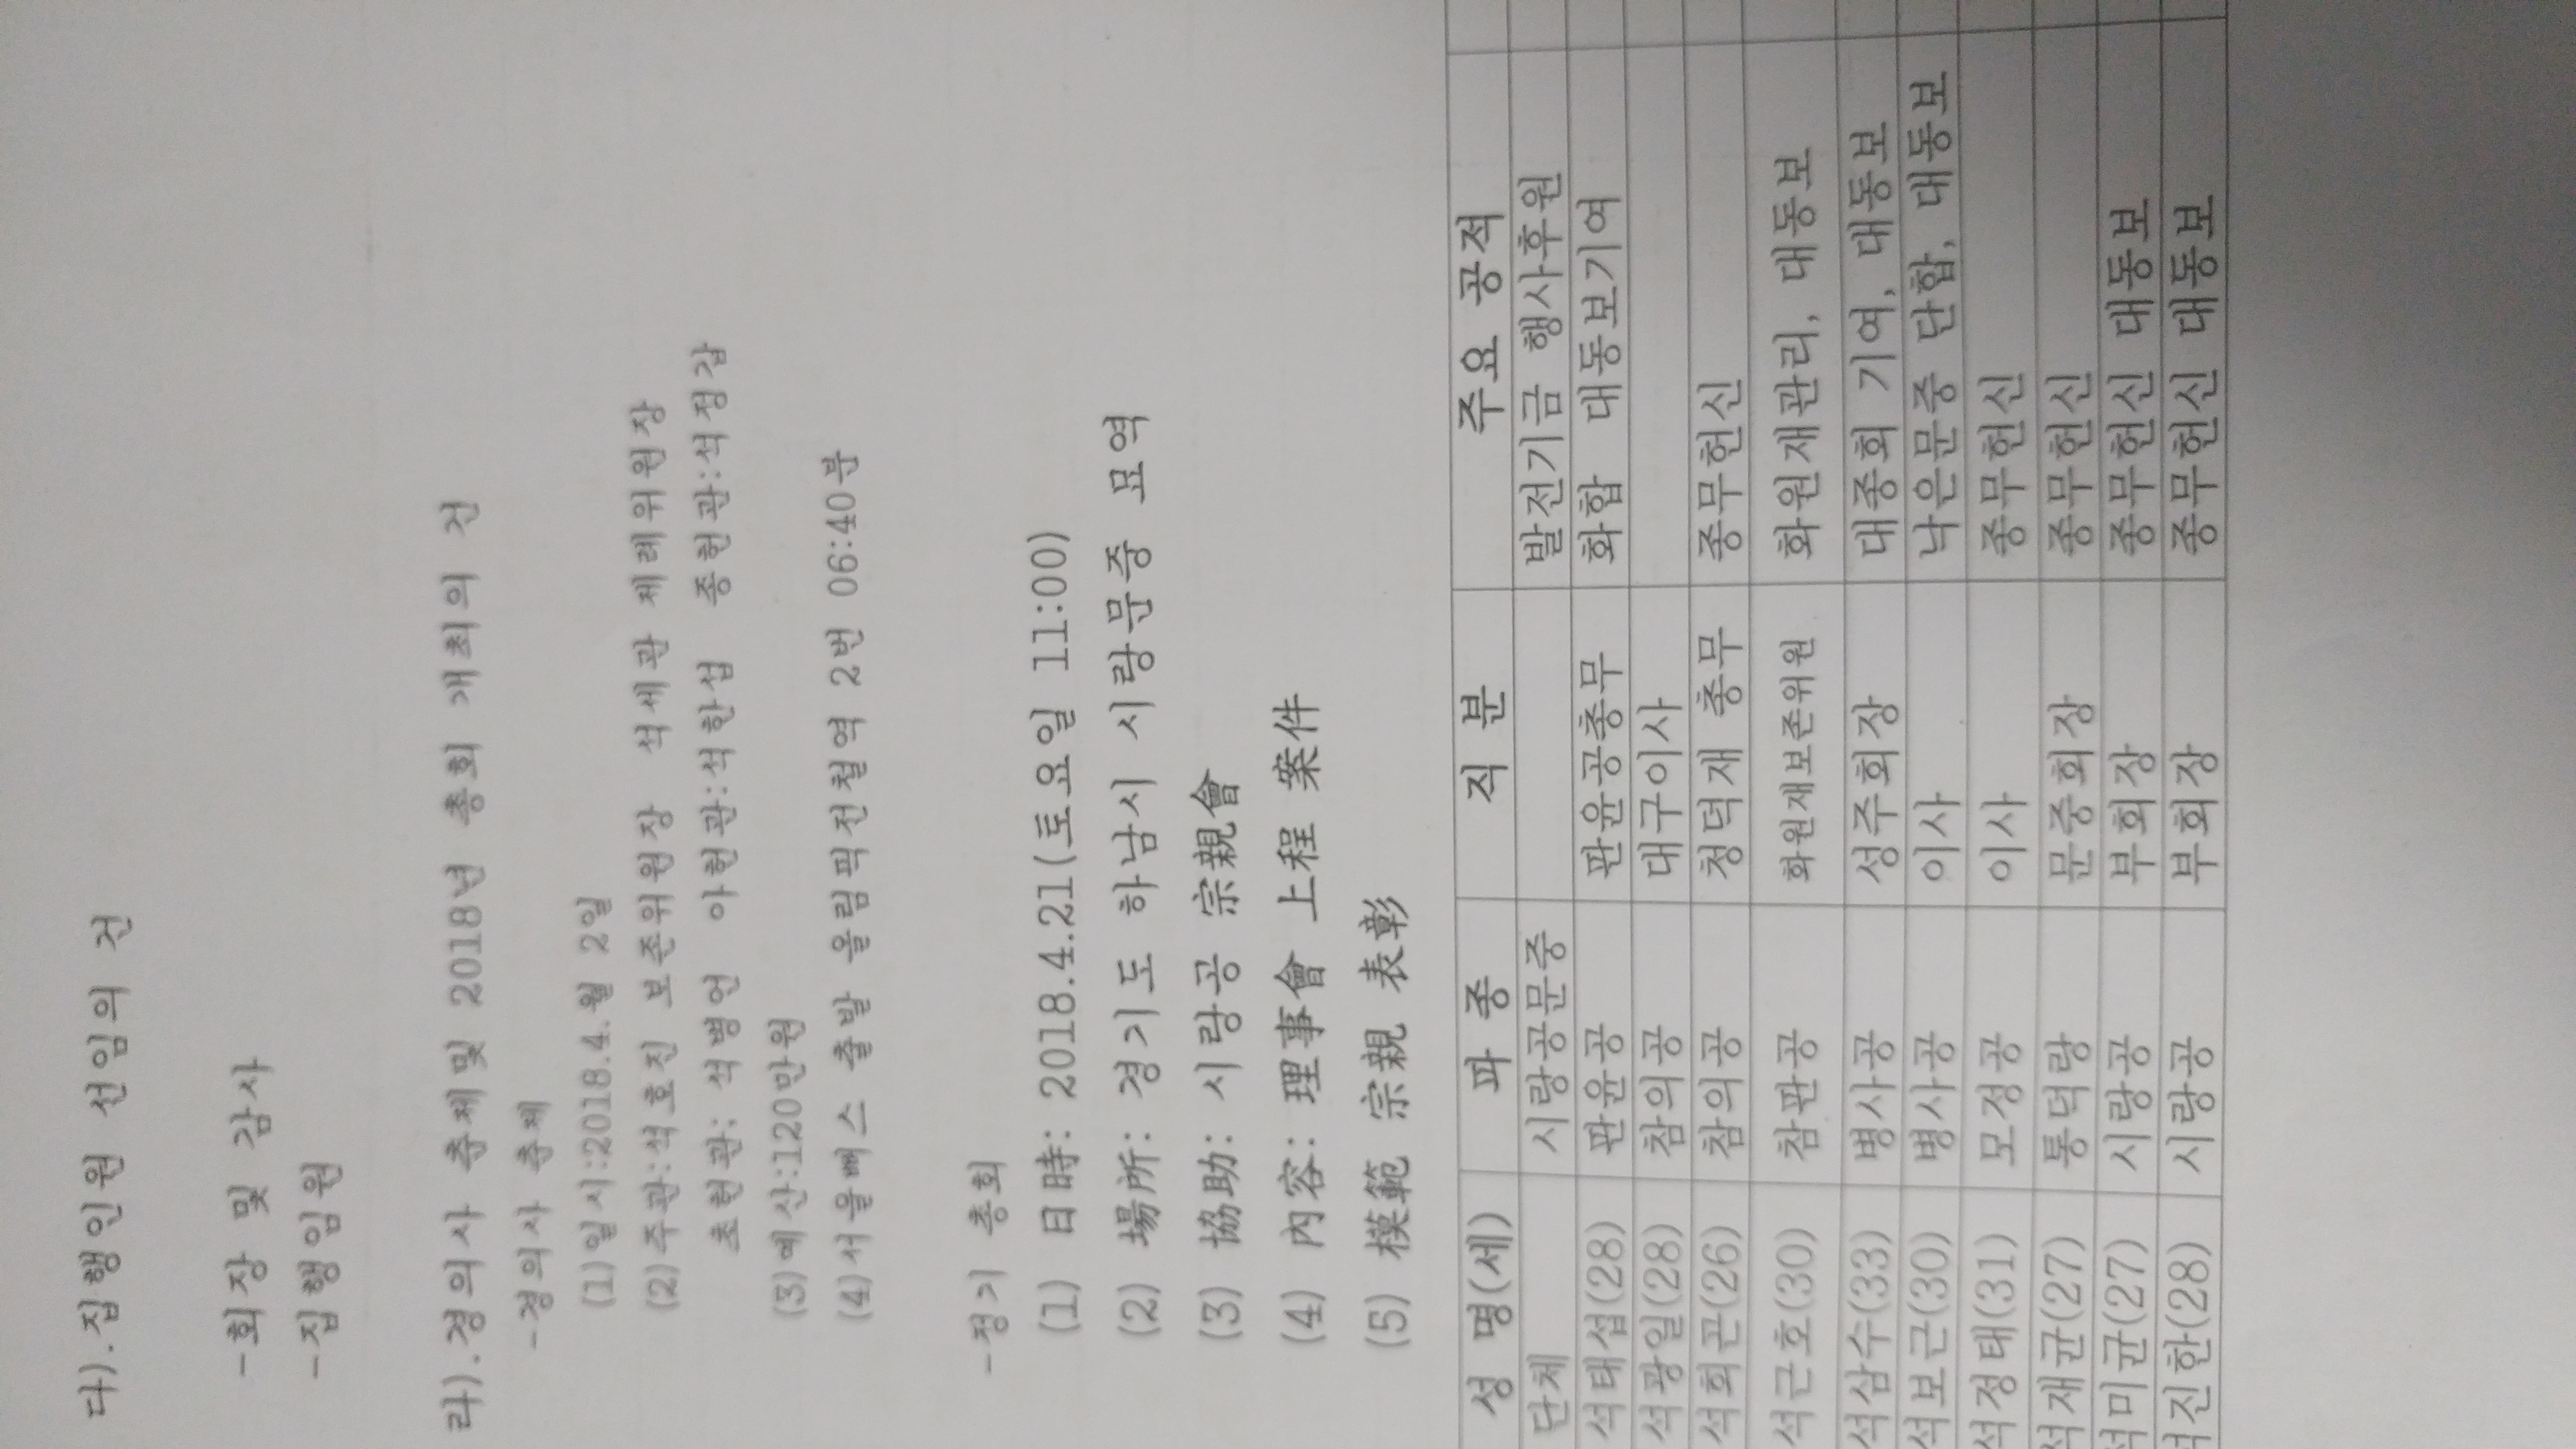 다).집행인원 선임의 건
-회장 및 감사
-집행임원
라).경의사 춘제및 2018년 총회 개최의 건
-경의사 춘제
(1)일시:2018.4.월 2일
(2)주관:석호진 보존위원장 석세관 제례위원장
초헌관: 석병언 아헌관:석한섭 종헌관:석정갑
(3)예산:120만원
(4)서울뻐스 출발 올림픽전철역 2번 06:40분
-정기 총회
(1) 日時: 2018.4.21(토요일 11:00)
(2) 場所: 경기도 하남시 시랑문중 묘역
(3) 協助: 시랑공 宗親會
(4) 內容: 理事會 上程 案件
(5) 模範 宗親 表彰
성 명(세) 파 종 직 분 주요 공적
단체 시랑공문중 발전기금 행사후원
석태섭(28) 판윤공 판윤공총무 화합 대동보기여
석광일(28) 참의공 대구이사
석희곤(26) 참의공 청덕재 총무 종무헌신
석근호(30) 참판공 화원재보존위원 화원재관리, 대동보
석삼수(33) 병사공 성주회장 대종회 기여, 대동보
석보근(30) 병사공 이사 낙은문중 단합, 대동보
석정태(31) 모정공 이사 종무헌신
석재균(27) 통덕랑 문중회장 종무헌신
석미균(27) 시랑공 부회장 종무헌신 대동보
석진한(28) 시랑공 부회장 종무헌신 대동보